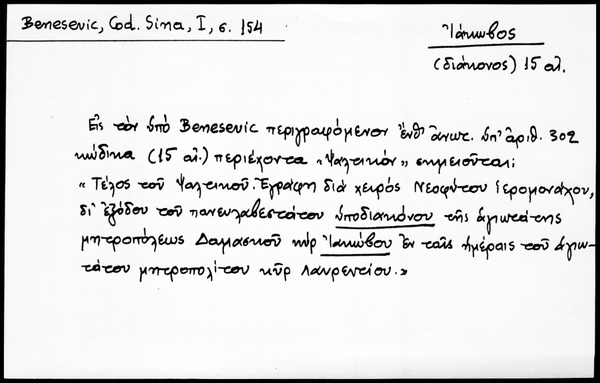 Benesevic, Cod. Sina, I, σ. 154
Ἰάκωβος
(διάκονος) 15 αἰ.
Εἰς τὸν ὑπὸ Benesevic περιγραφόμενον ἔνθ' ἀνωτ. ὑπ' ἀριθ. 302
κώδικα (15 αἰ.) περιέχοντα «Ψαλτικόν» σημειοῦται:
«Τέλος τοῦ ψαλτικοῦ. Ἐγράφη διὰ χειρός Νεοφύτου ἱερομονάχου,
δι' ἐξόδου τοῦ πανευλαβεστάτου ὑποδιακόνου τῆς ἁγιωτάτης
μητροπόλεως Δαμασκοῦ κὺρ Ἰακώβου ἐν ταῖς ἡμέραις τοῦ ἁγιω-
τάτου μητροπολίτου κῦρ Λαυρεντίου.»